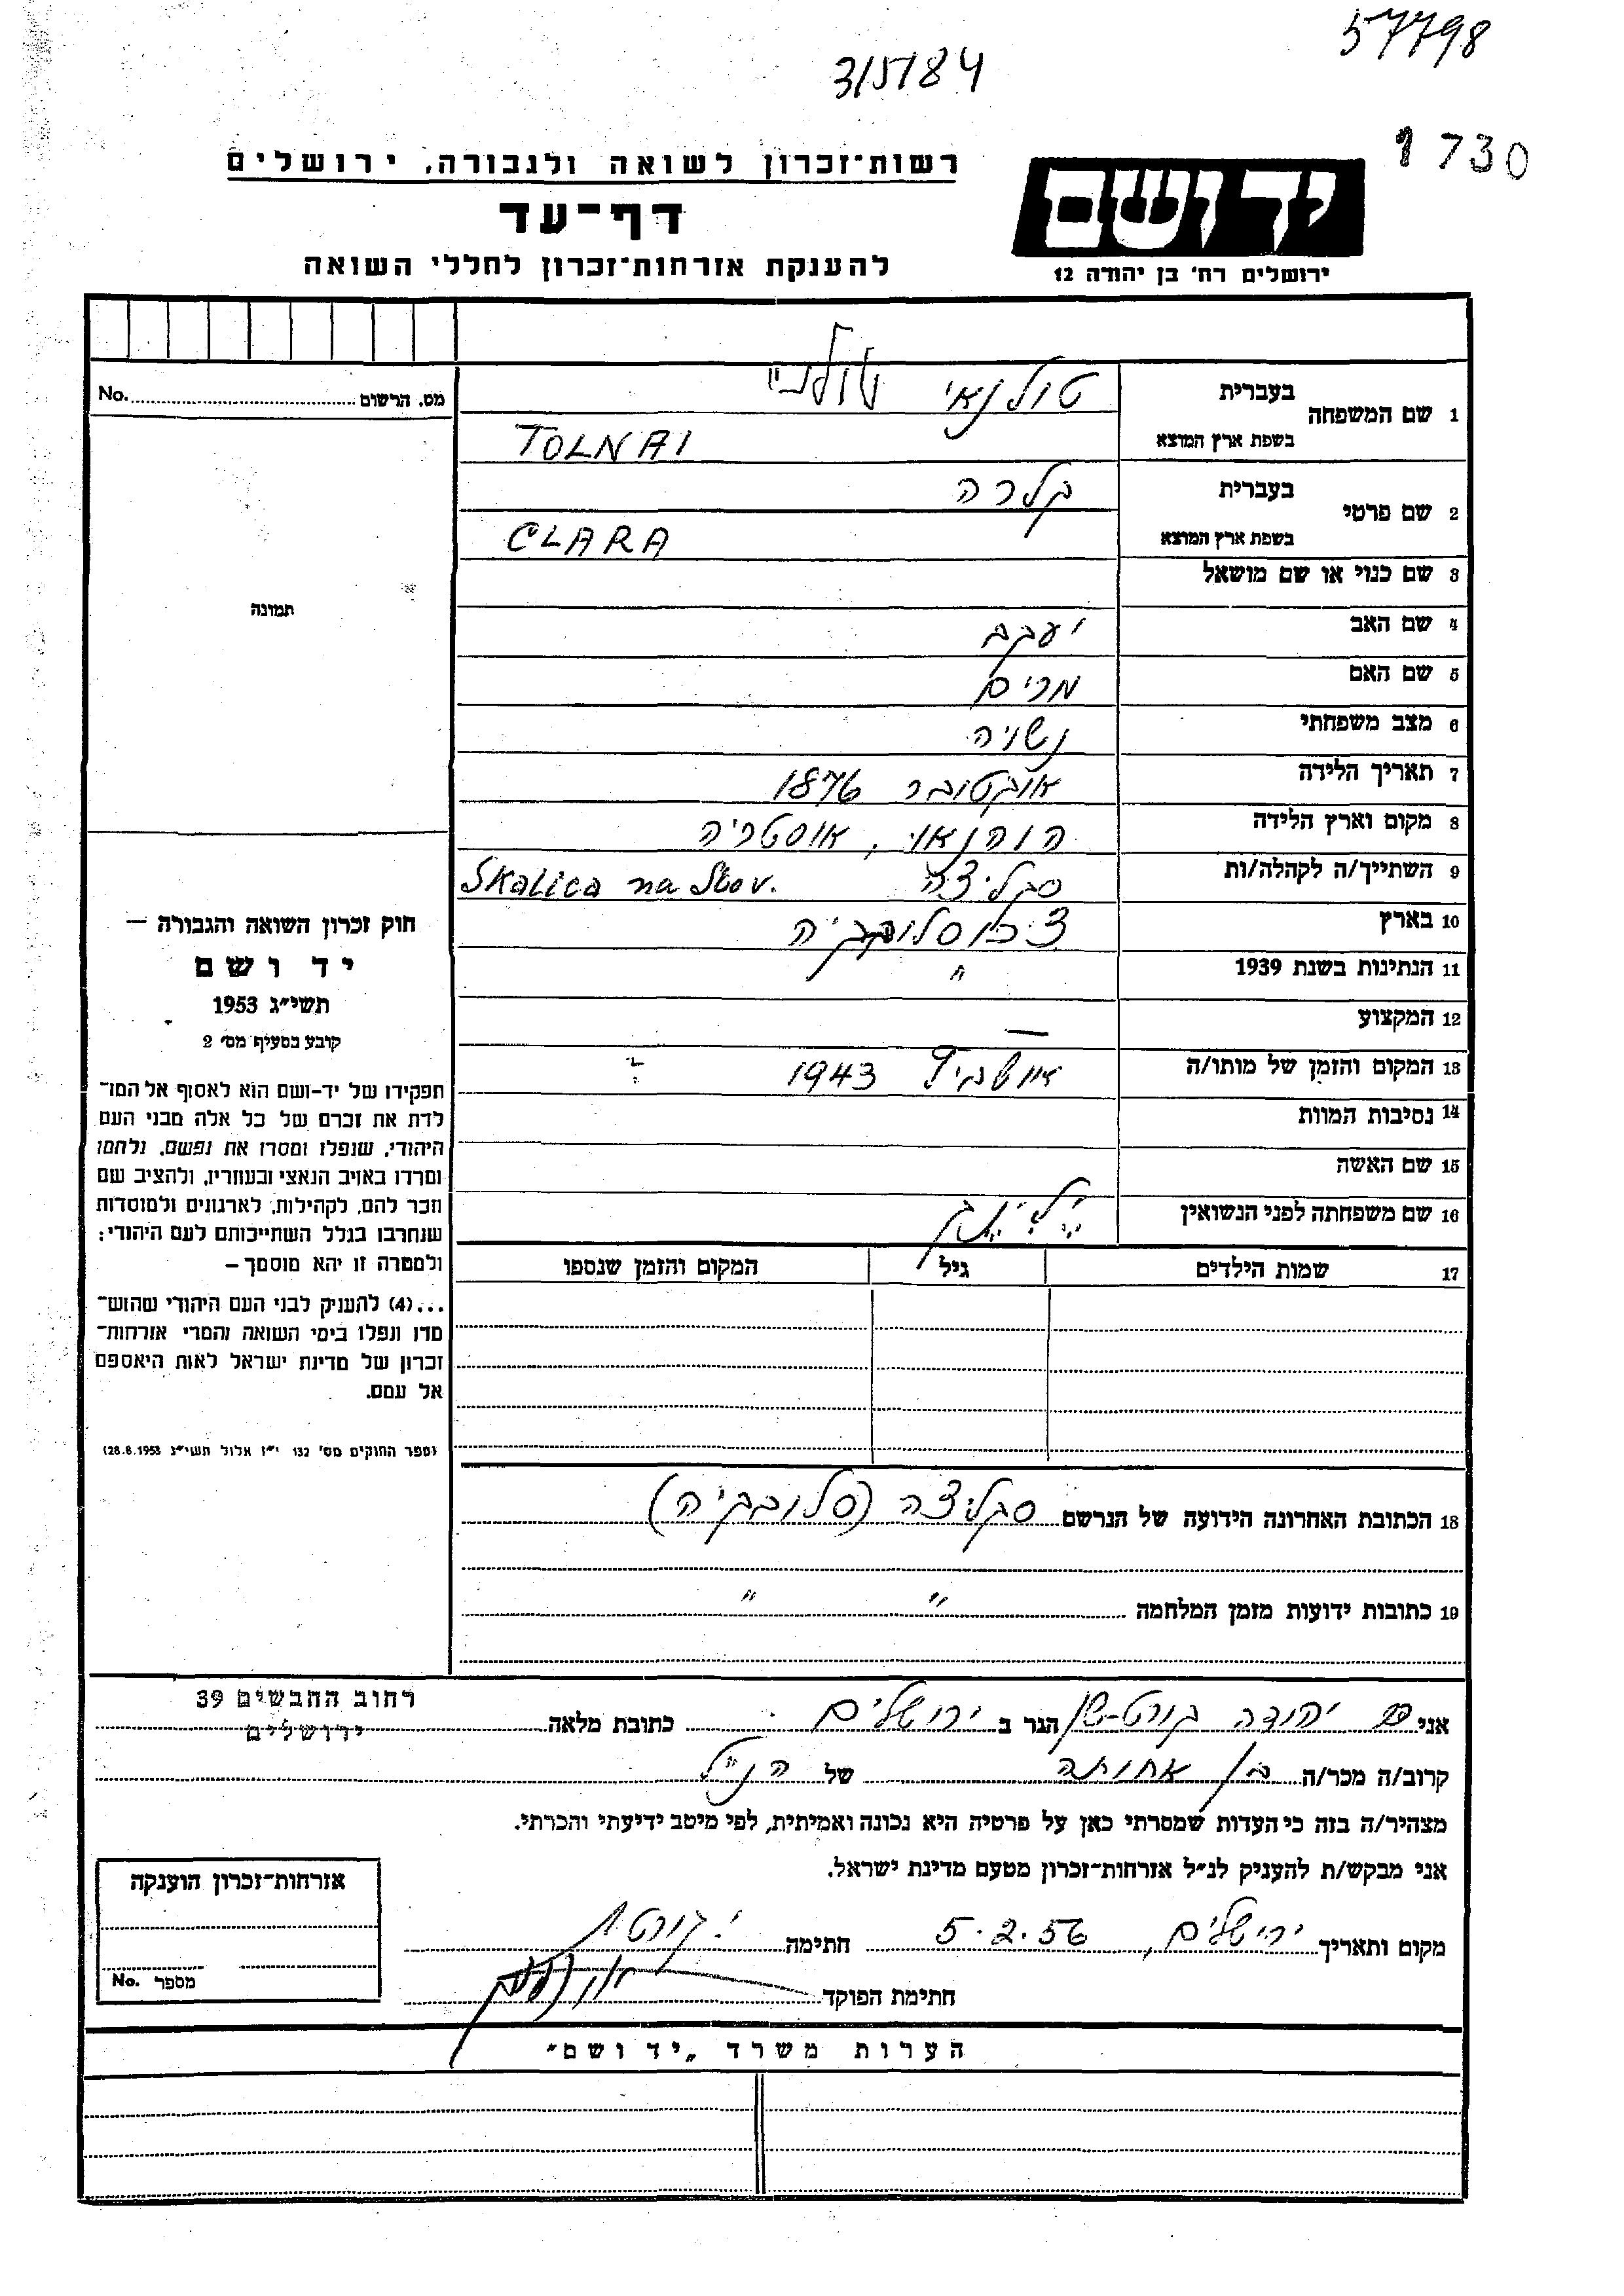 57798
3/5/84
1730
יד ושם
ירושלים רח' בן יהודה 12
רשות־זכרון לשואה ולגבורה, ירושלים
דף־עד
להענקת אזרחות־זכרון לחללי השואה
מס. הרשום No.
1 שם המשפחה בעברית טולנאי טולניי
בשפת ארץ המוצא TOLNAI
2 שם פרטי בעברית קלרה
בשפת ארץ המוצא CLARA
3 שם כנוי או שם מושאל
4 שם האב יעקב
5 שם האם מרים
6 מצב משפחתי נשויה
7 תאריך הלידה אוקטובר 1876
8 מקום וארץ הלידה הוהנאו, אוסטריה
9 השתייך/ה לקהלה/ות סקליצה Skalica na Slov.
10 בארץ צ'כוסלובקיה
11 הנתינות בשנת 1939 "
12 המקצוע —
13 המקום והזמן של מותו/ה אושביץ 1943 ?
14 נסיבות המוות
15 שם האשה
16 שם משפחתה לפני הנשואין
17 שמות הילדים גיל המקום והזמן שנספו
תמונה
חוק זכרון השואה והגבורה —
יד ושם
תשי״ג 1953
קובע בסעיף מס׳ 2
תפקידו של יד-ושם הוא לאסוף אל המו־
לדת את זכרם של כל אלה מבני העם
היהודי, שנפלו ומסרו את נפשם, נלחמו
ומרדו באויב הנאצי ובעוזריו, ולהציב שם
וזכר להם, לקהילות, לארגונים ולמוסדות
שנחרבו בגלל השתייכותם לעם היהודי;
ולמטרה זו יהא מוסמך —
...(4) להעניק לבני העם היהודי שהוש־
מדו ונפלו בימי השואה והמרי אזרחות־
זכרון של מדינת ישראל לאות היאספם
אל עמם.
(ספר החוקים מס׳ 132 י״ז אלול תשי״ג 28.8.1953)
18 הכתובת האחרונה הידועה של הנרשם סקליצה (סלובקיה)
19 כתובות ידועות מזמן המלחמה " "
אני יהודה קורט-שן הגר ב ירושלים כתובת מלאה רחוב החבשים 39
ירושלים
קרוב/ה מכר/ה בן אחותה של הנ״ל
מצהיר/ה בזה כי העדות שמסרתי כאן על פרטיה היא נכונה ואמיתית, לפי מיטב ידיעתי והכרתי.
אני מבקש/ת להעניק לנ״ל אזרחות־זכרון מטעם מדינת ישראל.
מקום ותאריך ירושלים, 5.2.56 חתימה
חתימת הפוקד
אזרחות־זכרון הוענקה
מספר No.
הערות משרד „יד ושם״